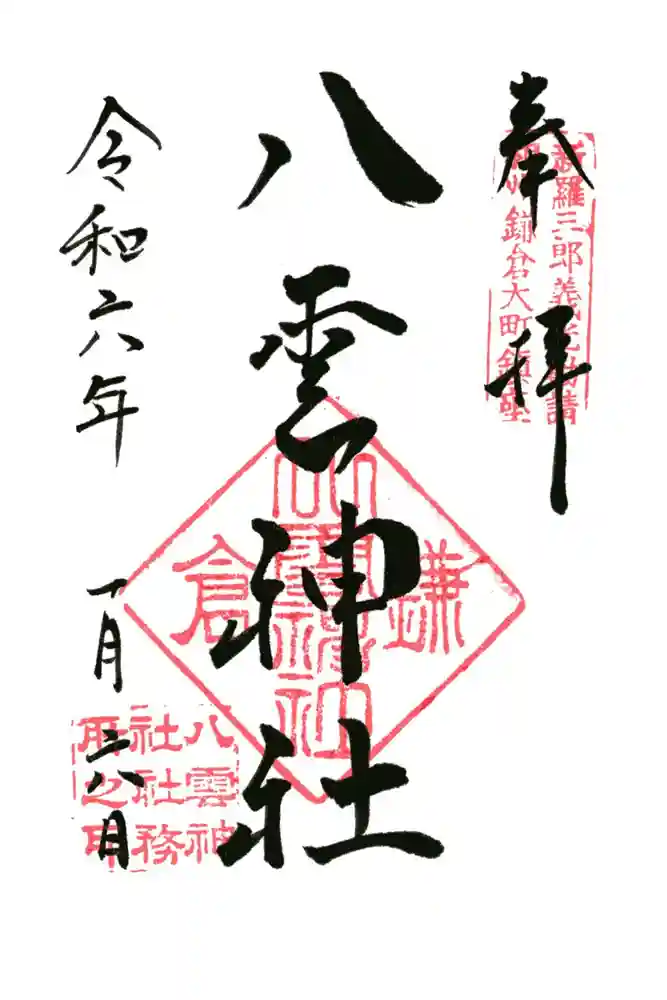 奉拝
新羅三郎義光勧請
相州鎌倉大町鎮座
八雲神社
鎌倉
八雲神社
令和六年 一月 二八日
八雲神
社社務
所之印